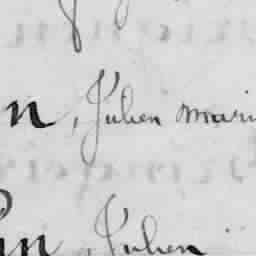 n, Julien mari
n, Julien